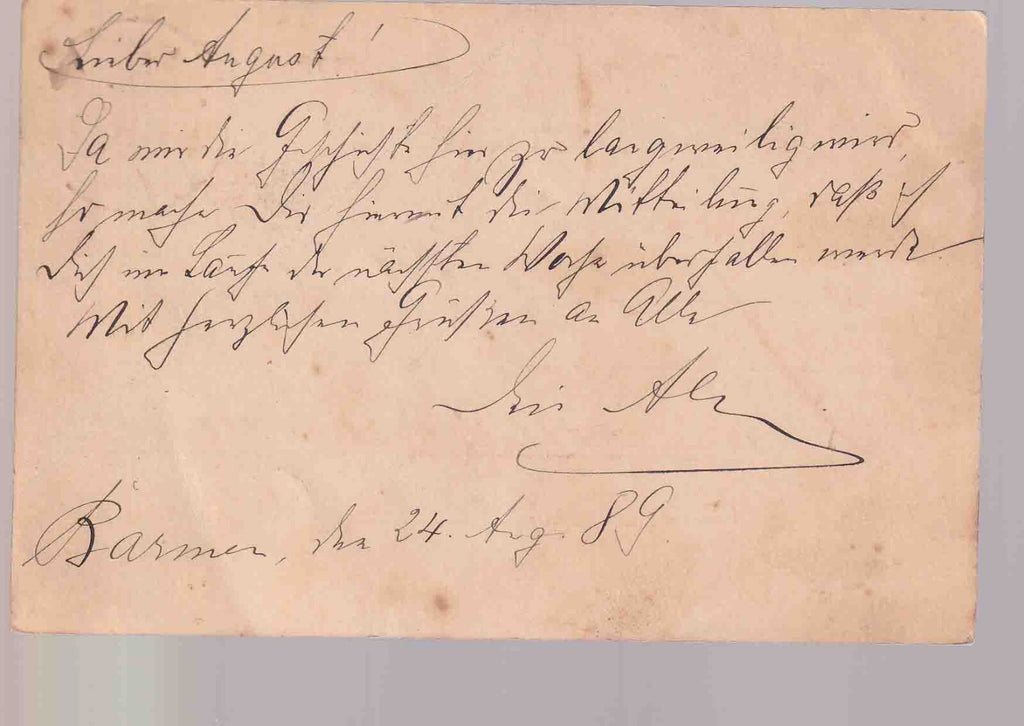 Lieber August!
Da mir die Geschichte hier zu langweilig wird,
so mache Dir hiermit die Mitteilung, daß ich
Dich im Laufe der nächsten Woche überfallen werde.
Mit herzlichen Grüßen an Alle
Dein
Barmen, den 24. Aug. 89.